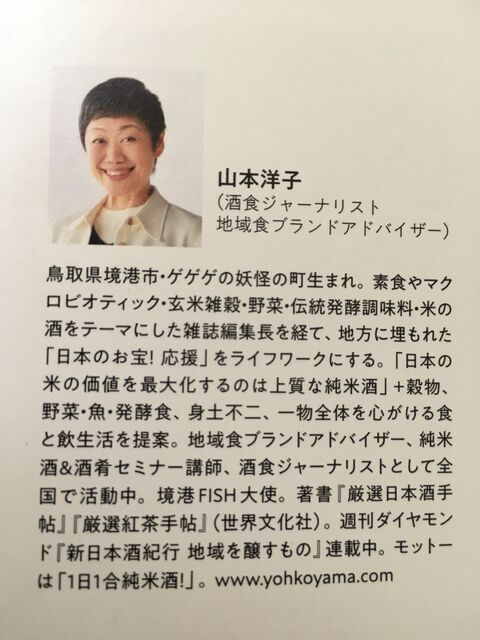 山本洋子
(酒食ジャーナリスト
地域食ブランドアドバイザー)
鳥取県境港市・ゲゲゲの妖怪の町生まれ。素食やマク
ロビオティック・玄米雑穀・野菜・伝統発酵調味料・米の
酒をテーマにした雑誌編集長を経て、地方に埋もれた
「日本のお宝! 応援」をライフワークにする。「日本の
米の価値を最大化するのは上質な純米酒」+穀物、
野菜・魚・発酵食、身土不二、一物全体を心がける食
と飲生活を提案。地域食ブランドアドバイザー、純米
酒&酒肴セミナー講師、酒食ジャーナリストとして全
国で活動中。境港FISH大使。著書『厳選日本酒手
帖』『厳選紅茶手帖』(世界文化社)。週刊ダイヤモン
ド『新日本酒紀行 地域を醸すもの』連載中。モットー
は「1日1合純米酒!」。www.yohkoyama.com